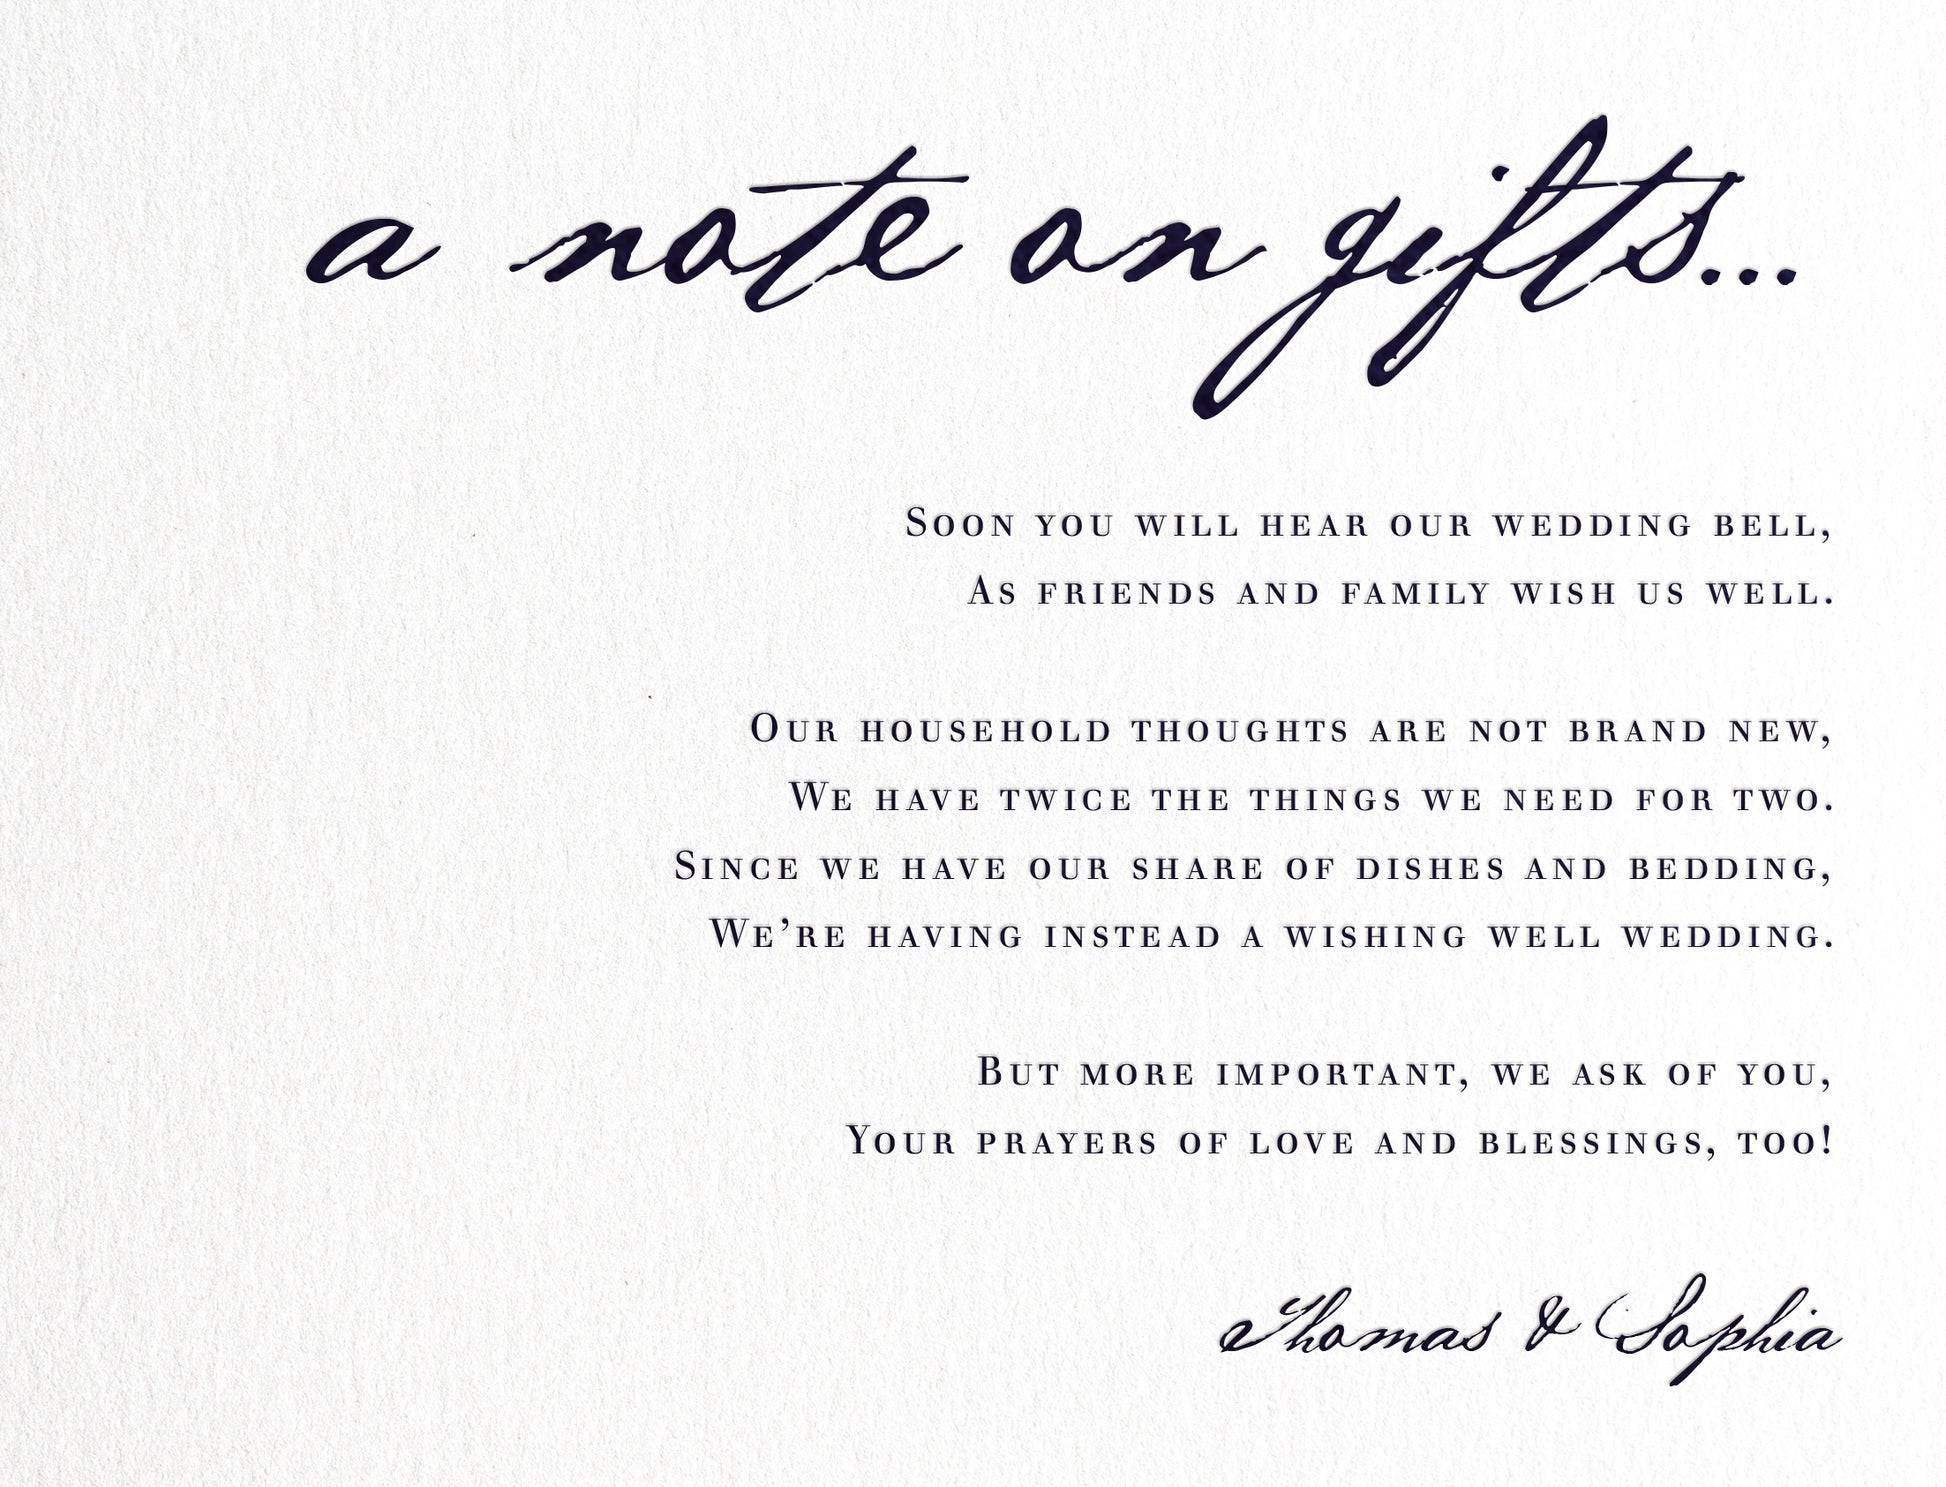 a note on gifts...
Soon you will hear our wedding bell,
As friends and family wish us well.
Our household thoughts are not brand new,
We have twice the things we need for two.
Since we have our share of dishes and bedding,
We’re having instead a wishing well wedding.
But more important, we ask of you,
Your prayers of love and blessings, too!
Thomas & Sophia